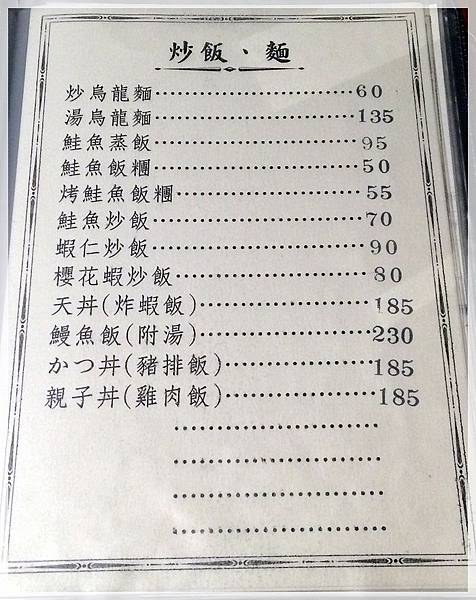 炒飯、麵
炒烏龍麵⋯⋯⋯⋯⋯⋯⋯⋯60
湯烏龍麵⋯⋯⋯⋯⋯⋯⋯⋯135
鮭魚蒸飯⋯⋯⋯⋯⋯⋯⋯⋯95
鮭魚飯糰⋯⋯⋯⋯⋯⋯⋯⋯50
烤鮭魚飯糰⋯⋯⋯⋯⋯⋯⋯55
鮭魚炒飯⋯⋯⋯⋯⋯⋯⋯⋯70
蝦仁炒飯⋯⋯⋯⋯⋯⋯⋯⋯90
櫻花蝦炒飯⋯⋯⋯⋯⋯⋯⋯80
天丼(炸蝦飯)⋯⋯⋯⋯⋯⋯185
鰻魚飯(附湯)⋯⋯⋯⋯⋯⋯230
かつ丼(豬排飯)⋯⋯⋯⋯⋯185
親子丼(雞肉飯)⋯⋯⋯⋯⋯185